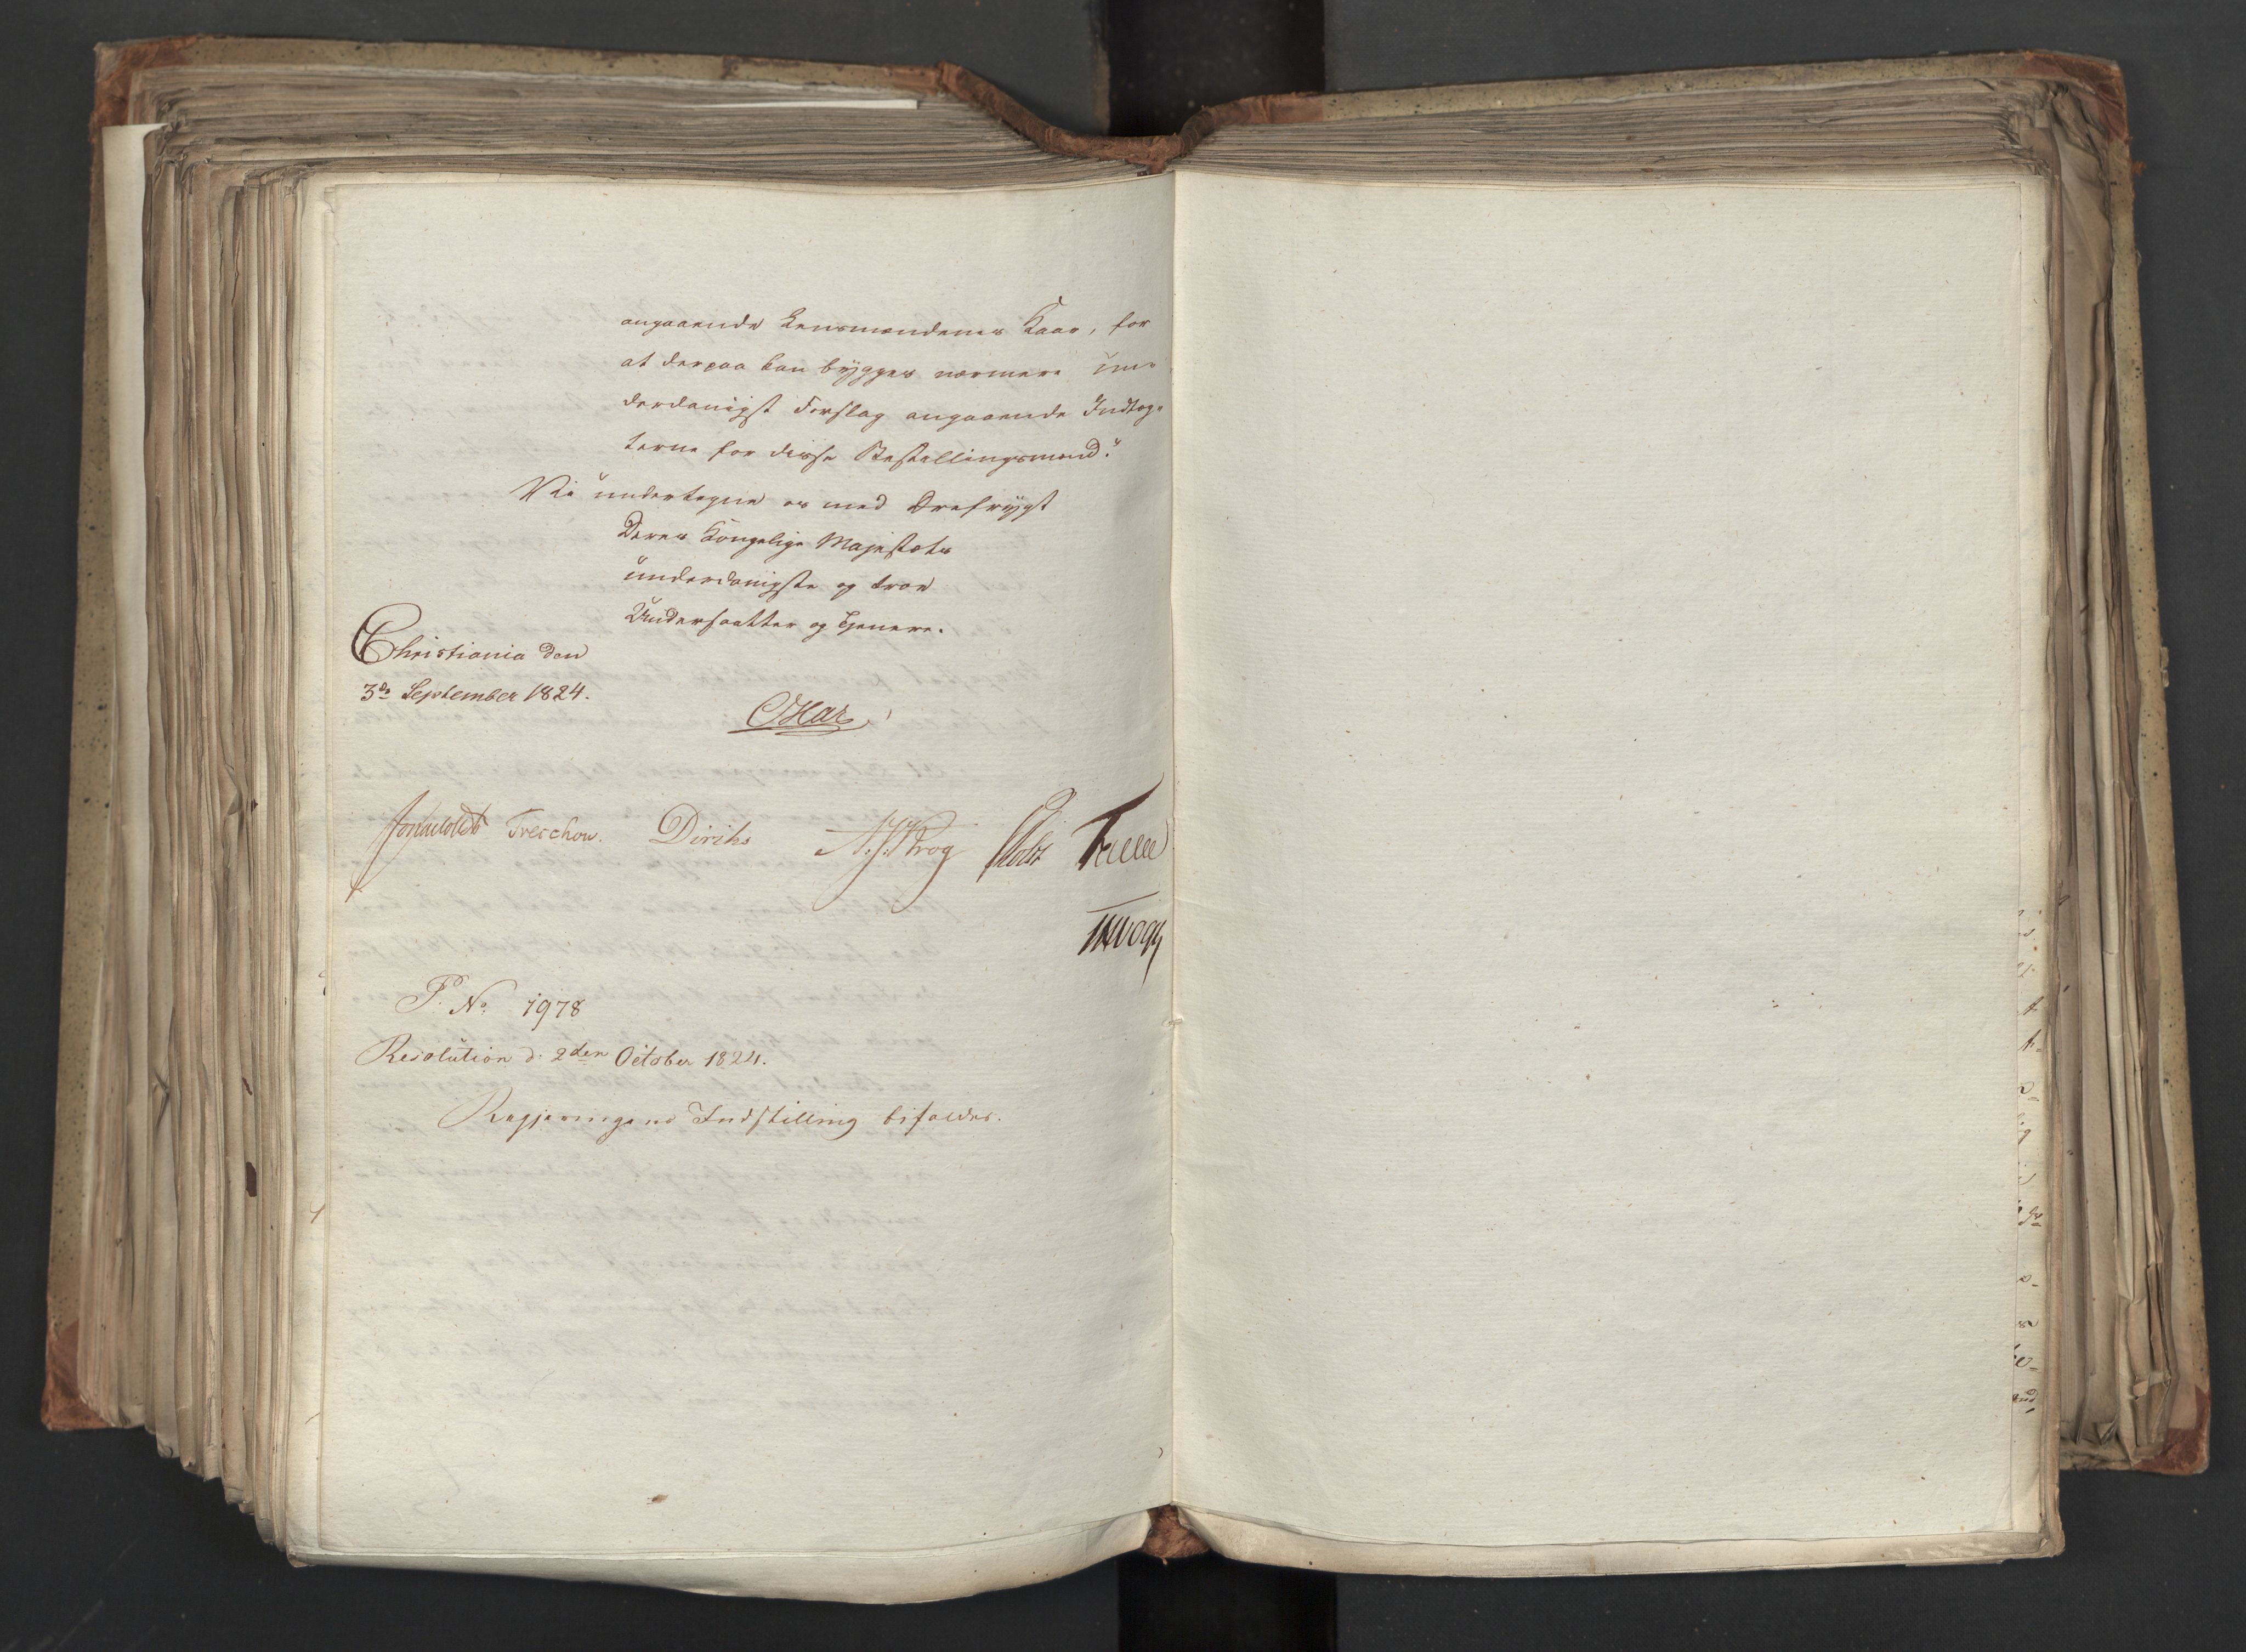 angaaende Lensmændenes Kaar, for
at derpaa kan bygges nærmere un-
derdanigst Forslag angaaende Indtæg-
terne for disse Bestillingsmænd."
Vi undertegne os med Ærefrygt
Deres Kongelige Majestæts
underdanigste og troe
Undersaatter og Tjenere.
Christiania den
3de September 1824.
OSkar
Sommerhielm Treschow. Diriks N.J.Krog Holst Fasting
P. No. 1978
Resolution d. 2den October 1824.
Regjeringens Indstilling bifaldes.